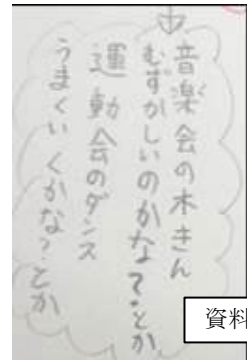 音楽会の木きん
むずかしいのかな?とか
運動会のダンス
うまくいくかな?とか
資料